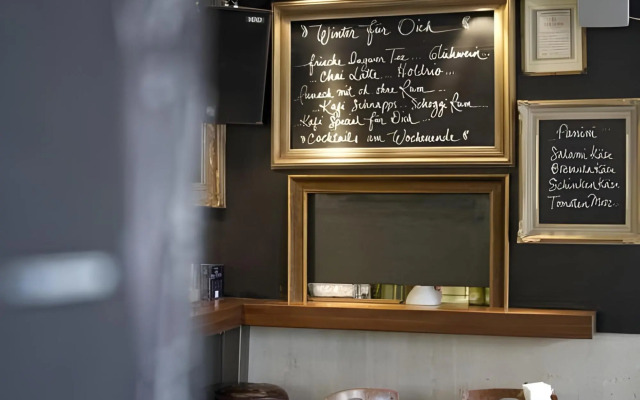 » Winter für Dich «
frische Ingwer Tee... Glühwein...
... Chai Latte... Holdrio...
Punsch mit od ohne Rum...
... Kafi Schnapps... Schoggi Rum...
Kafi Spezial für Dich...
» Cocktails am Wochenende «
Panini...
Salami Käse
Schinken Käse
Tomaten Mozz..